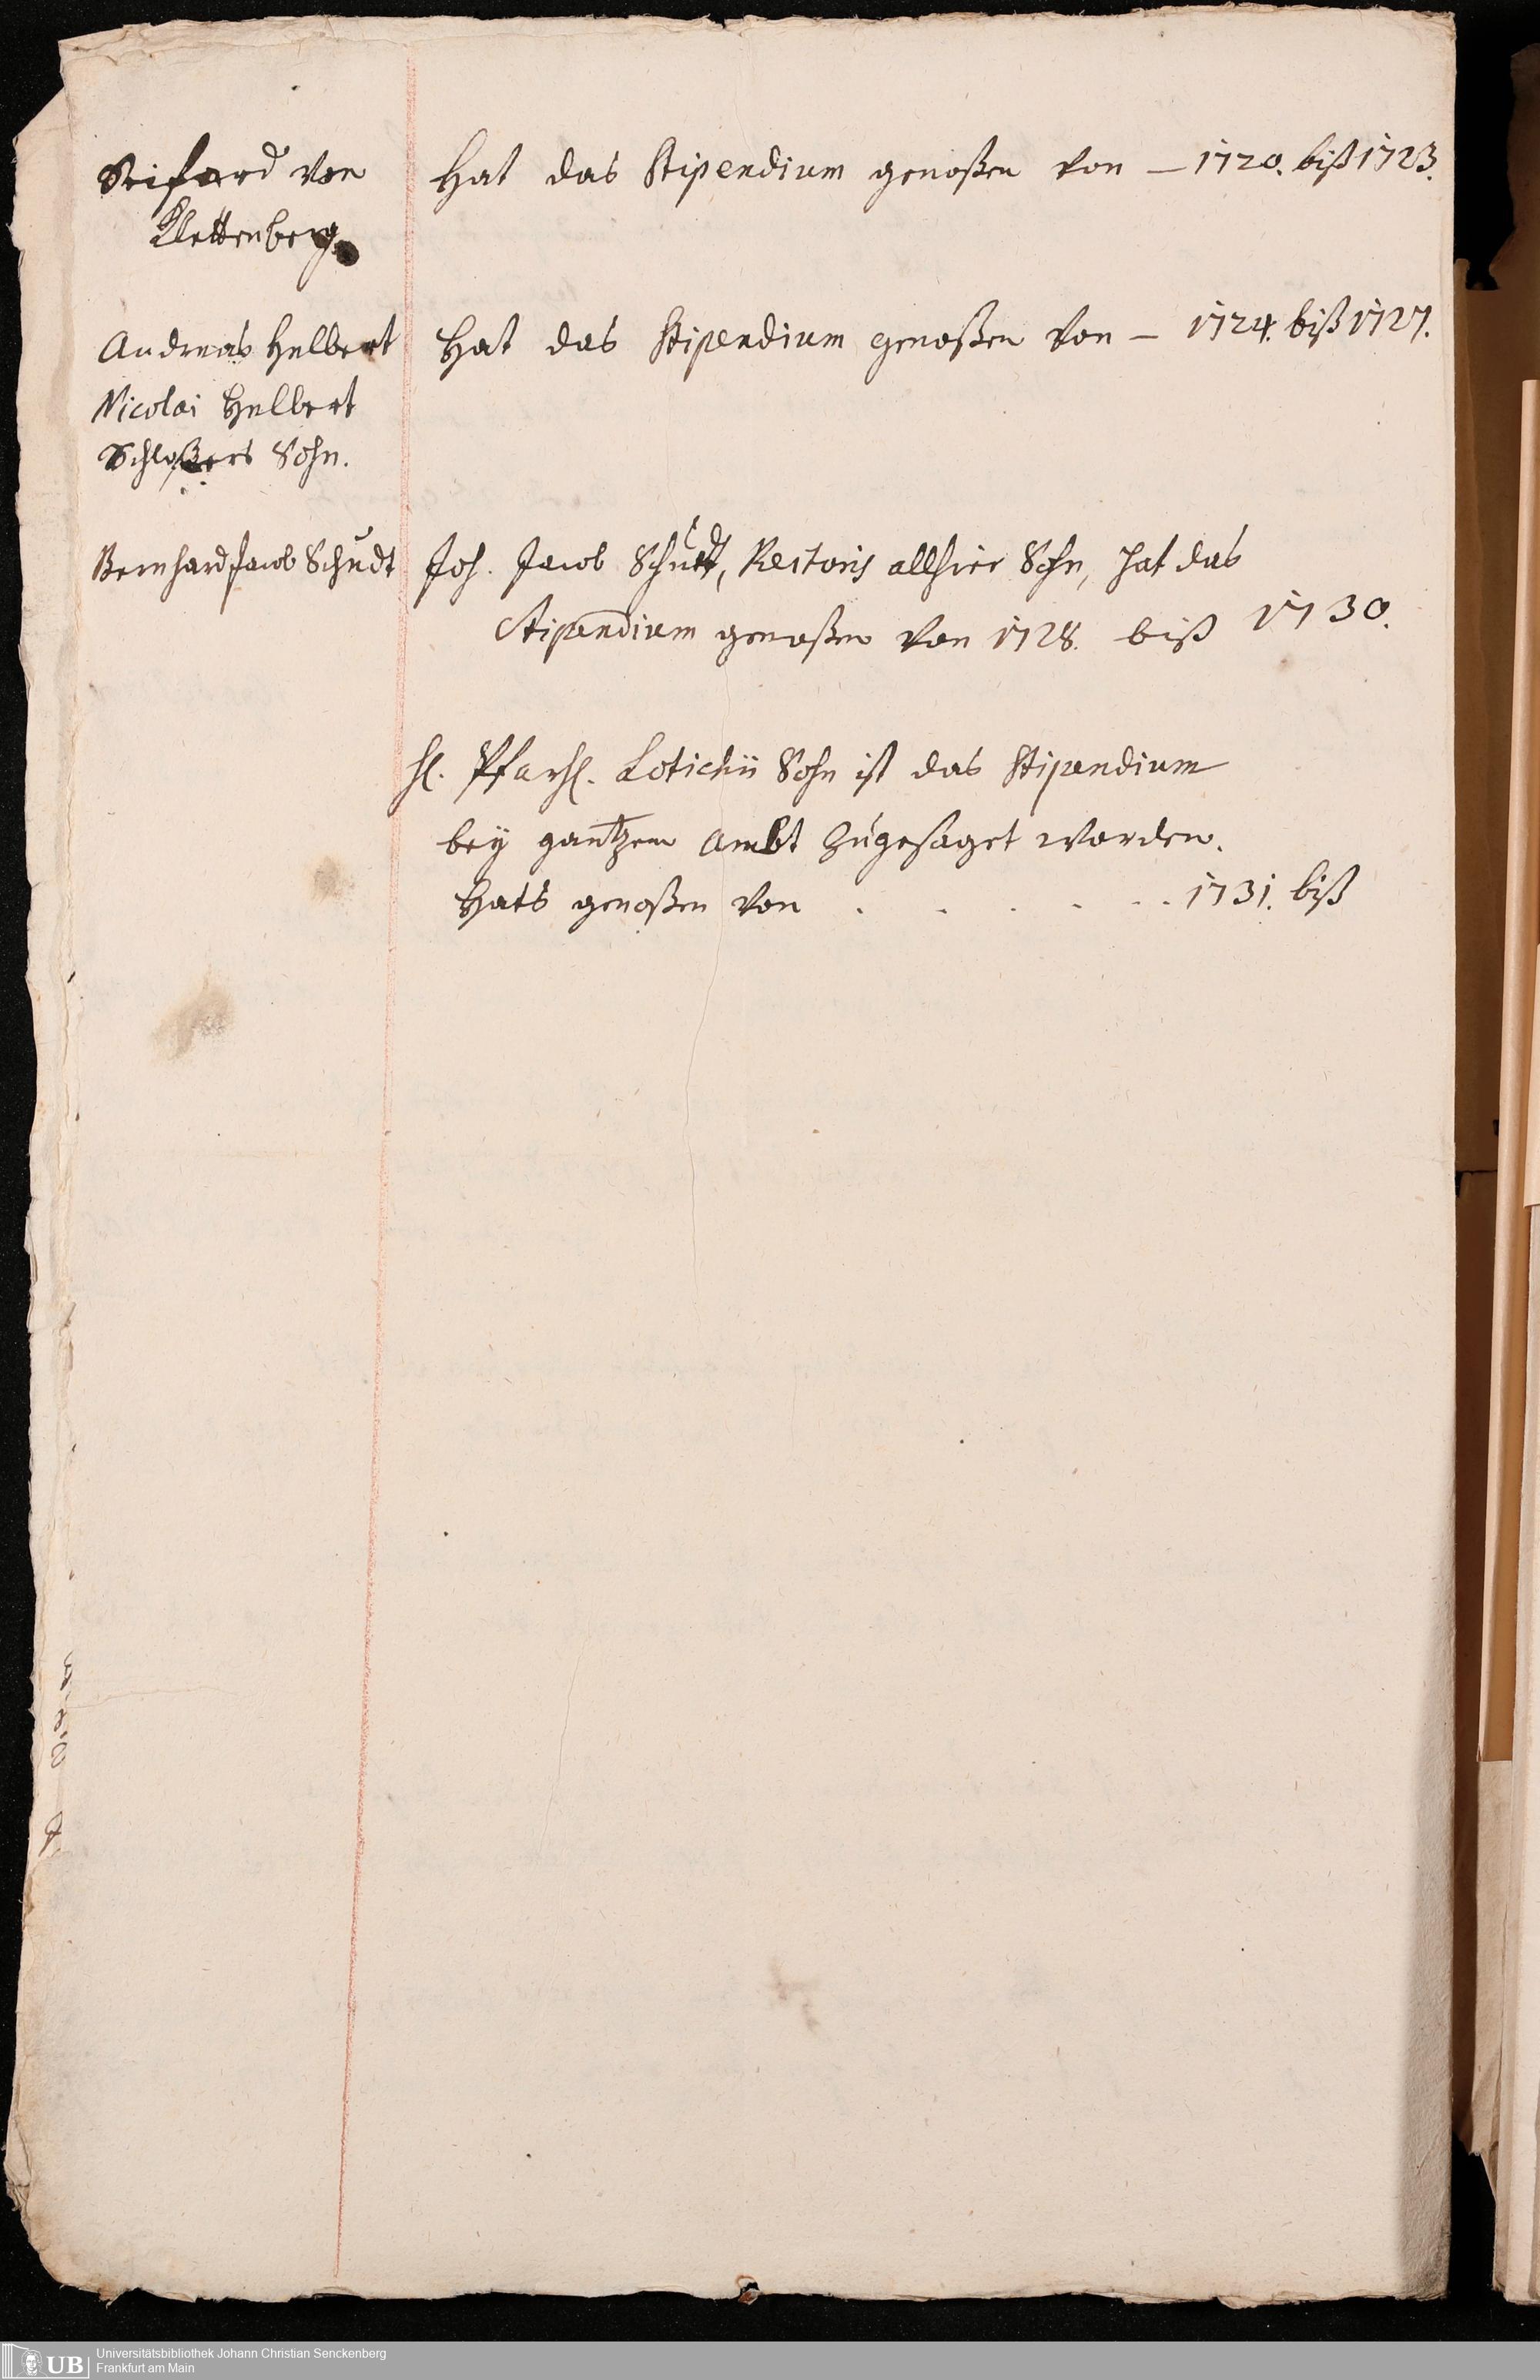 Seifard von
Klettenberg.
Hat das Stipendium genoßen von – 1720. biß 1723.
Andreas Helbert
Nicolai Helbert
Schloßers Sohn.
Hat das Stipendium genoßen von – 1724. biß 1727.
Bernhard Jacob Schudt
Joh. Jacob Schudt, Rectoris allhier Sohn, hat das
Stipendium genoßen von 1728. biß 1730.
H. Pfarh. Lotichii Sohn ist das Stipendium
bey gantzem Ambt zugesaget worden.
Hats genoßen von . . . . . . 1731. biß
UB
Universitätsbibliothek Johann Christian Senckenberg
Frankfurt am Main